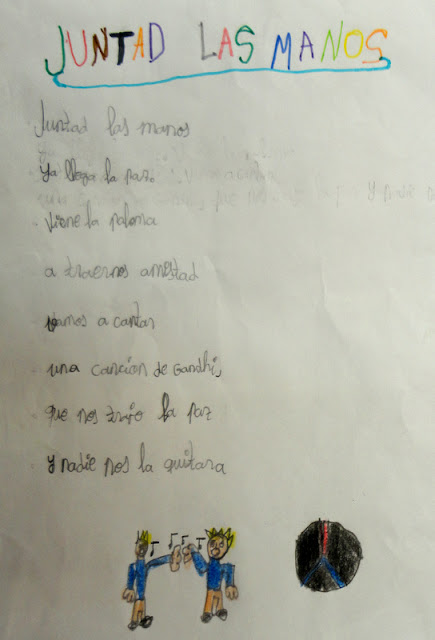 JUNTAD LAS MANOS
Juntad las manos
Ya llega la paz.
Viene la paloma
a traernos amistad
vamos a cantar
una cancion de Gandhi,
que nos trajo la paz
Y nadie nos la quitara